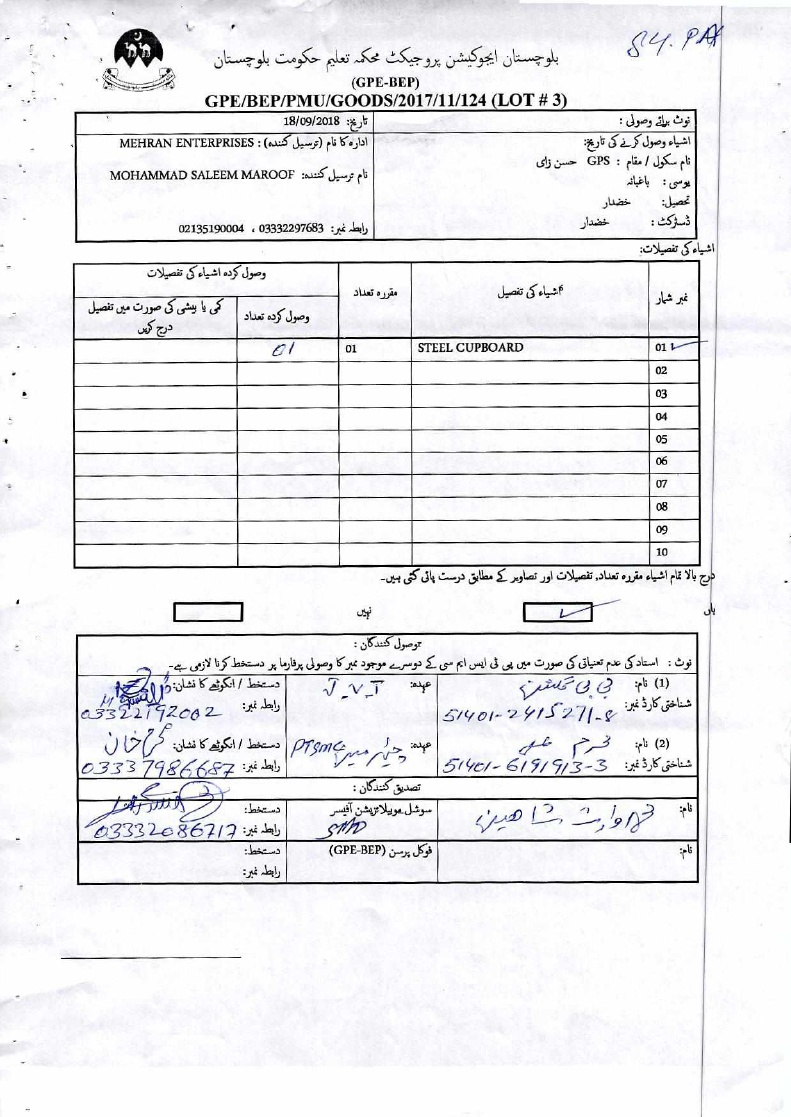 84. PAK
بلوچستان ایجوکیشن پروجیکٹ محکمہ تعلیم حکومت بلوچستان
(GPE-BEP)
GPE/BEP/PMU/GOODS/2017/11/124 (LOT # 3)
نوٹ برائے وصولی :
تاریخ: 18/09/2018
اشیاء وصول کرنے کی تاریخ:
نام سکول / مقام : GPS حسن زای
یوسی : باغبانہ
تحصیل: خضدار
ڈسٹرکٹ : خضدار
ادارہ کا نام (ترسیل کنندہ) : MEHRAN ENTERPRISES
نام ترسیل کنندہ: MOHAMMAD SALEEM MAROOF
رابطہ نمبر: 03332297683 ، 02135190004
اشیاء کی تفصیلات:
نمبر شمار
اشیاء کی تفصیل
مقررہ تعداد
وصول کردہ اشیاء کی تفصیلات
وصول کردہ تعداد
کمی یا بیشی کی صورت میں تفصیل درج کریں
01 STEEL CUPBOARD 01 01
02
03
04
05
06
07
08
09
10
درج بالا تمام اشیاء مقررہ تعداد, تفصیلات اور تصاویر کے مطابق درست پائی گئی ہیں۔
ہاں ✓ نہیں
وصول کنندگان :
نوٹ : استاد کی عدم تعیناتی کی صورت میں پی ٹی ایس ایم سی کے دوسرے موجود ممبر کا وصولی پرفارما پر دستخط کرنا لازمی ہے۔
(1) نام: بی بی
شناختی کارڈ نمبر: 51401-2415271-8
عہدہ: J.V.T
دستخط / انگوٹھے کا نشان:
رابطہ نمبر: 03322192002
(2) نام:
شناختی کارڈ نمبر: 51401-6191913-3
عہدہ: PTSMC
دستخط / انگوٹھے کا نشان: خان
رابطہ نمبر: 03337986687
تصدیق کنندگان :
نام: شاھین
سوشل موبیلائزیشن آفیسر
دستخط:
رابطہ نمبر: 03332086717
نام:
فوکل پرسن (GPE-BEP)
دستخط:
رابطہ نمبر: